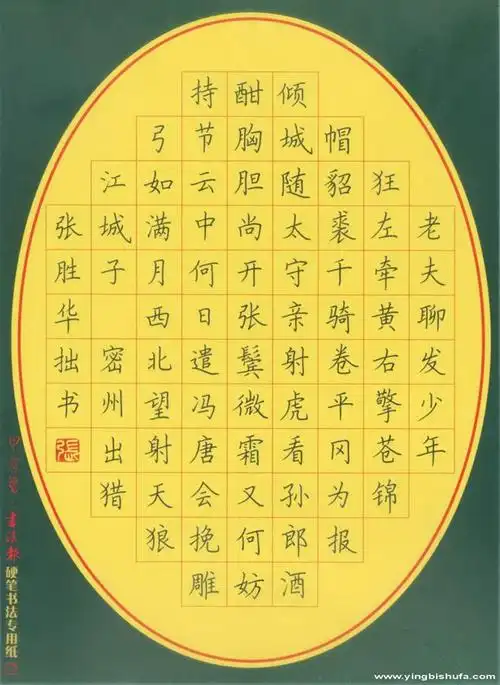 老夫聊发少年
狂左牵黄右擎苍锦
帽貂裘千骑卷平冈为报
倾城随太守亲射虎看孙郎酒
酣胸胆尚开张鬓微霜又何妨
持节云中何日遣冯唐会挽雕
弓如满月西北望射天狼
江城子 密州出猎
张胜华拙书
張
書法報 硬笔书法专用纸
www.yingbishufa.com